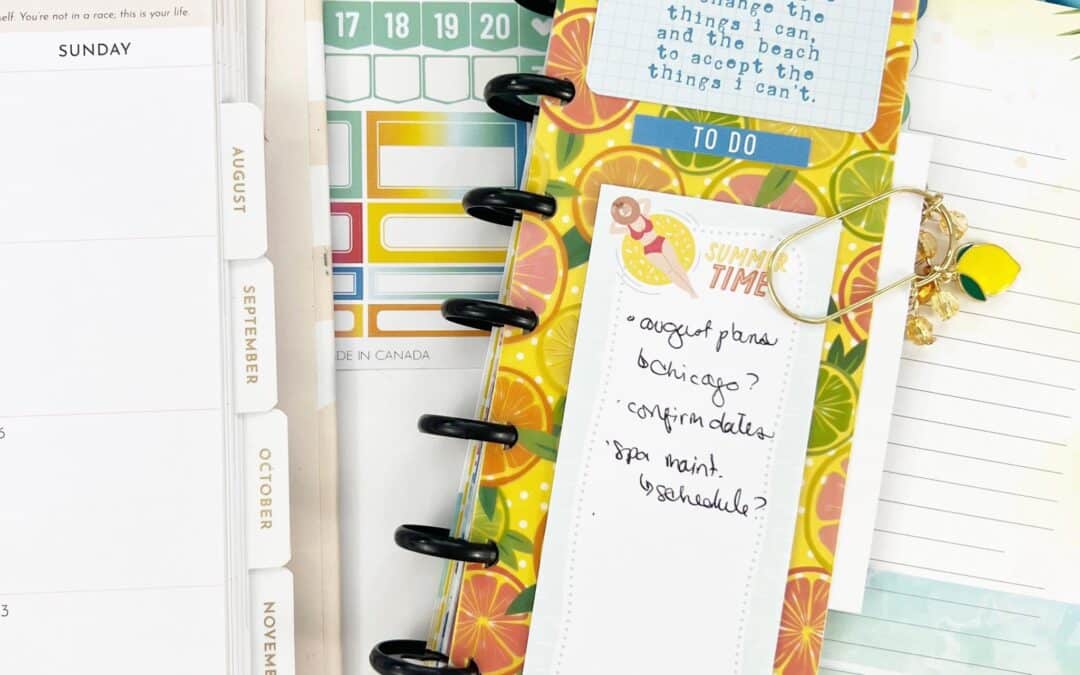 self. You're not in a race; this is your life.
SUNDAY
AUGUST
SEPTEMBER
OCTOBER
17 18 19 20
DE IN CANADA
change the
things i can,
and the beach
to accept the
things i can't.
TO DO
SUMMER
TIME
• august plans
↳ chicago?
• confirm dates
• spa maint.
↳ schedule?